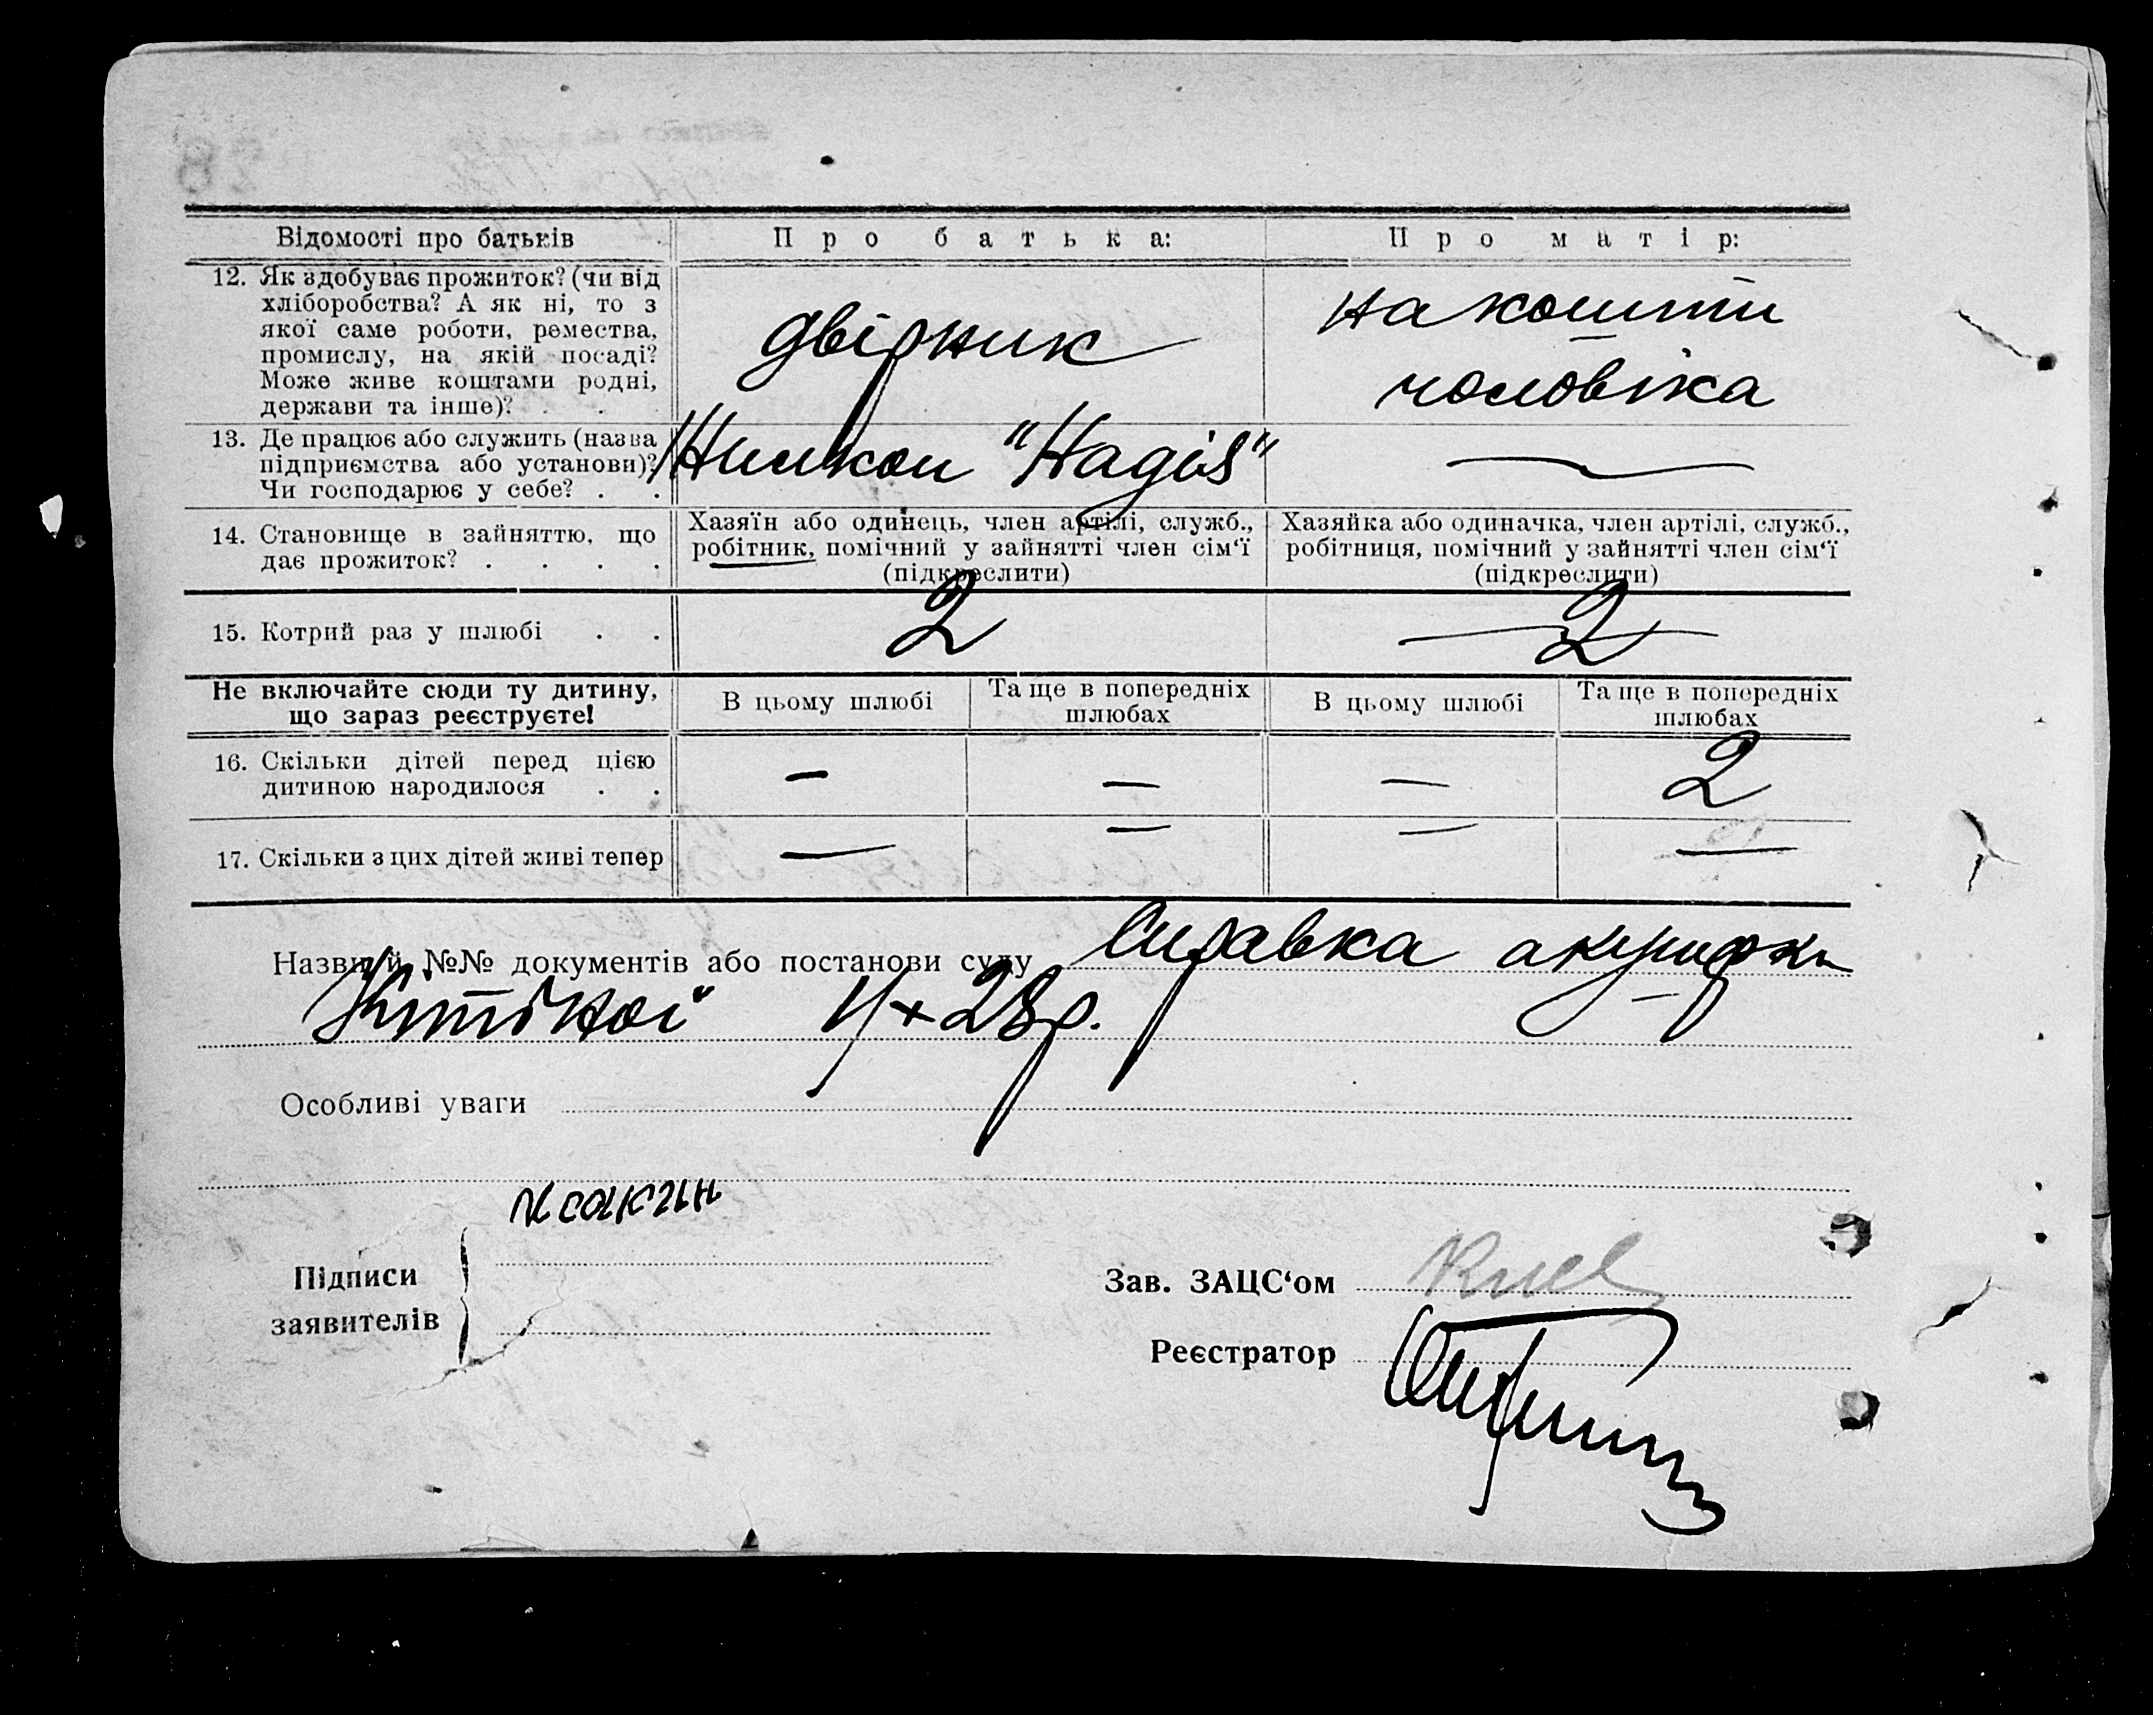 Відомості про батьків
Про батька:
Про матір:
12. Як здобуває прожиток? (чи від
хліборобства? А як ні, то з
якої саме роботи, ремества,
промислу, на якій посаді?
Може живе коштами родні,
держави та інше)? . .
двірник
на кошти
чоловіка
13. Де працює або служить (назва
підприємства або установи)?
Чи господарює у себе? . .
Жилкоп "Надія"
14. Становище в зайняттю, що
дає прожиток? . . . .
Хазяїн або одинець, член артілі, служб.,
робітник, помічний у зайнятті член сім'ї
(підкреслити)
Хазяйка або одиначка, член артілі, служб.,
робітниця, помічний у зайнятті член сім'ї
(підкреслити)
15. Котрий раз у шлюбі . .
2
2
Не включайте сюди ту дитину,
що зараз реєструєте!
В цьому шлюбі
Та ще в попередніх
шлюбах
В цьому шлюбі
Та ще в попередніх
шлюбах
16. Скільки дітей перед цією
дитиною народилося . .
—
—
—
2
17. Скільки з цих дітей живі тепер
—
—
—
—
Назви й №№ документів або постанови суду Справка акушерки
28р.
Особливі уваги
Підписи
заявителів
Зав. ЗАЦС'ом
Реєстратор